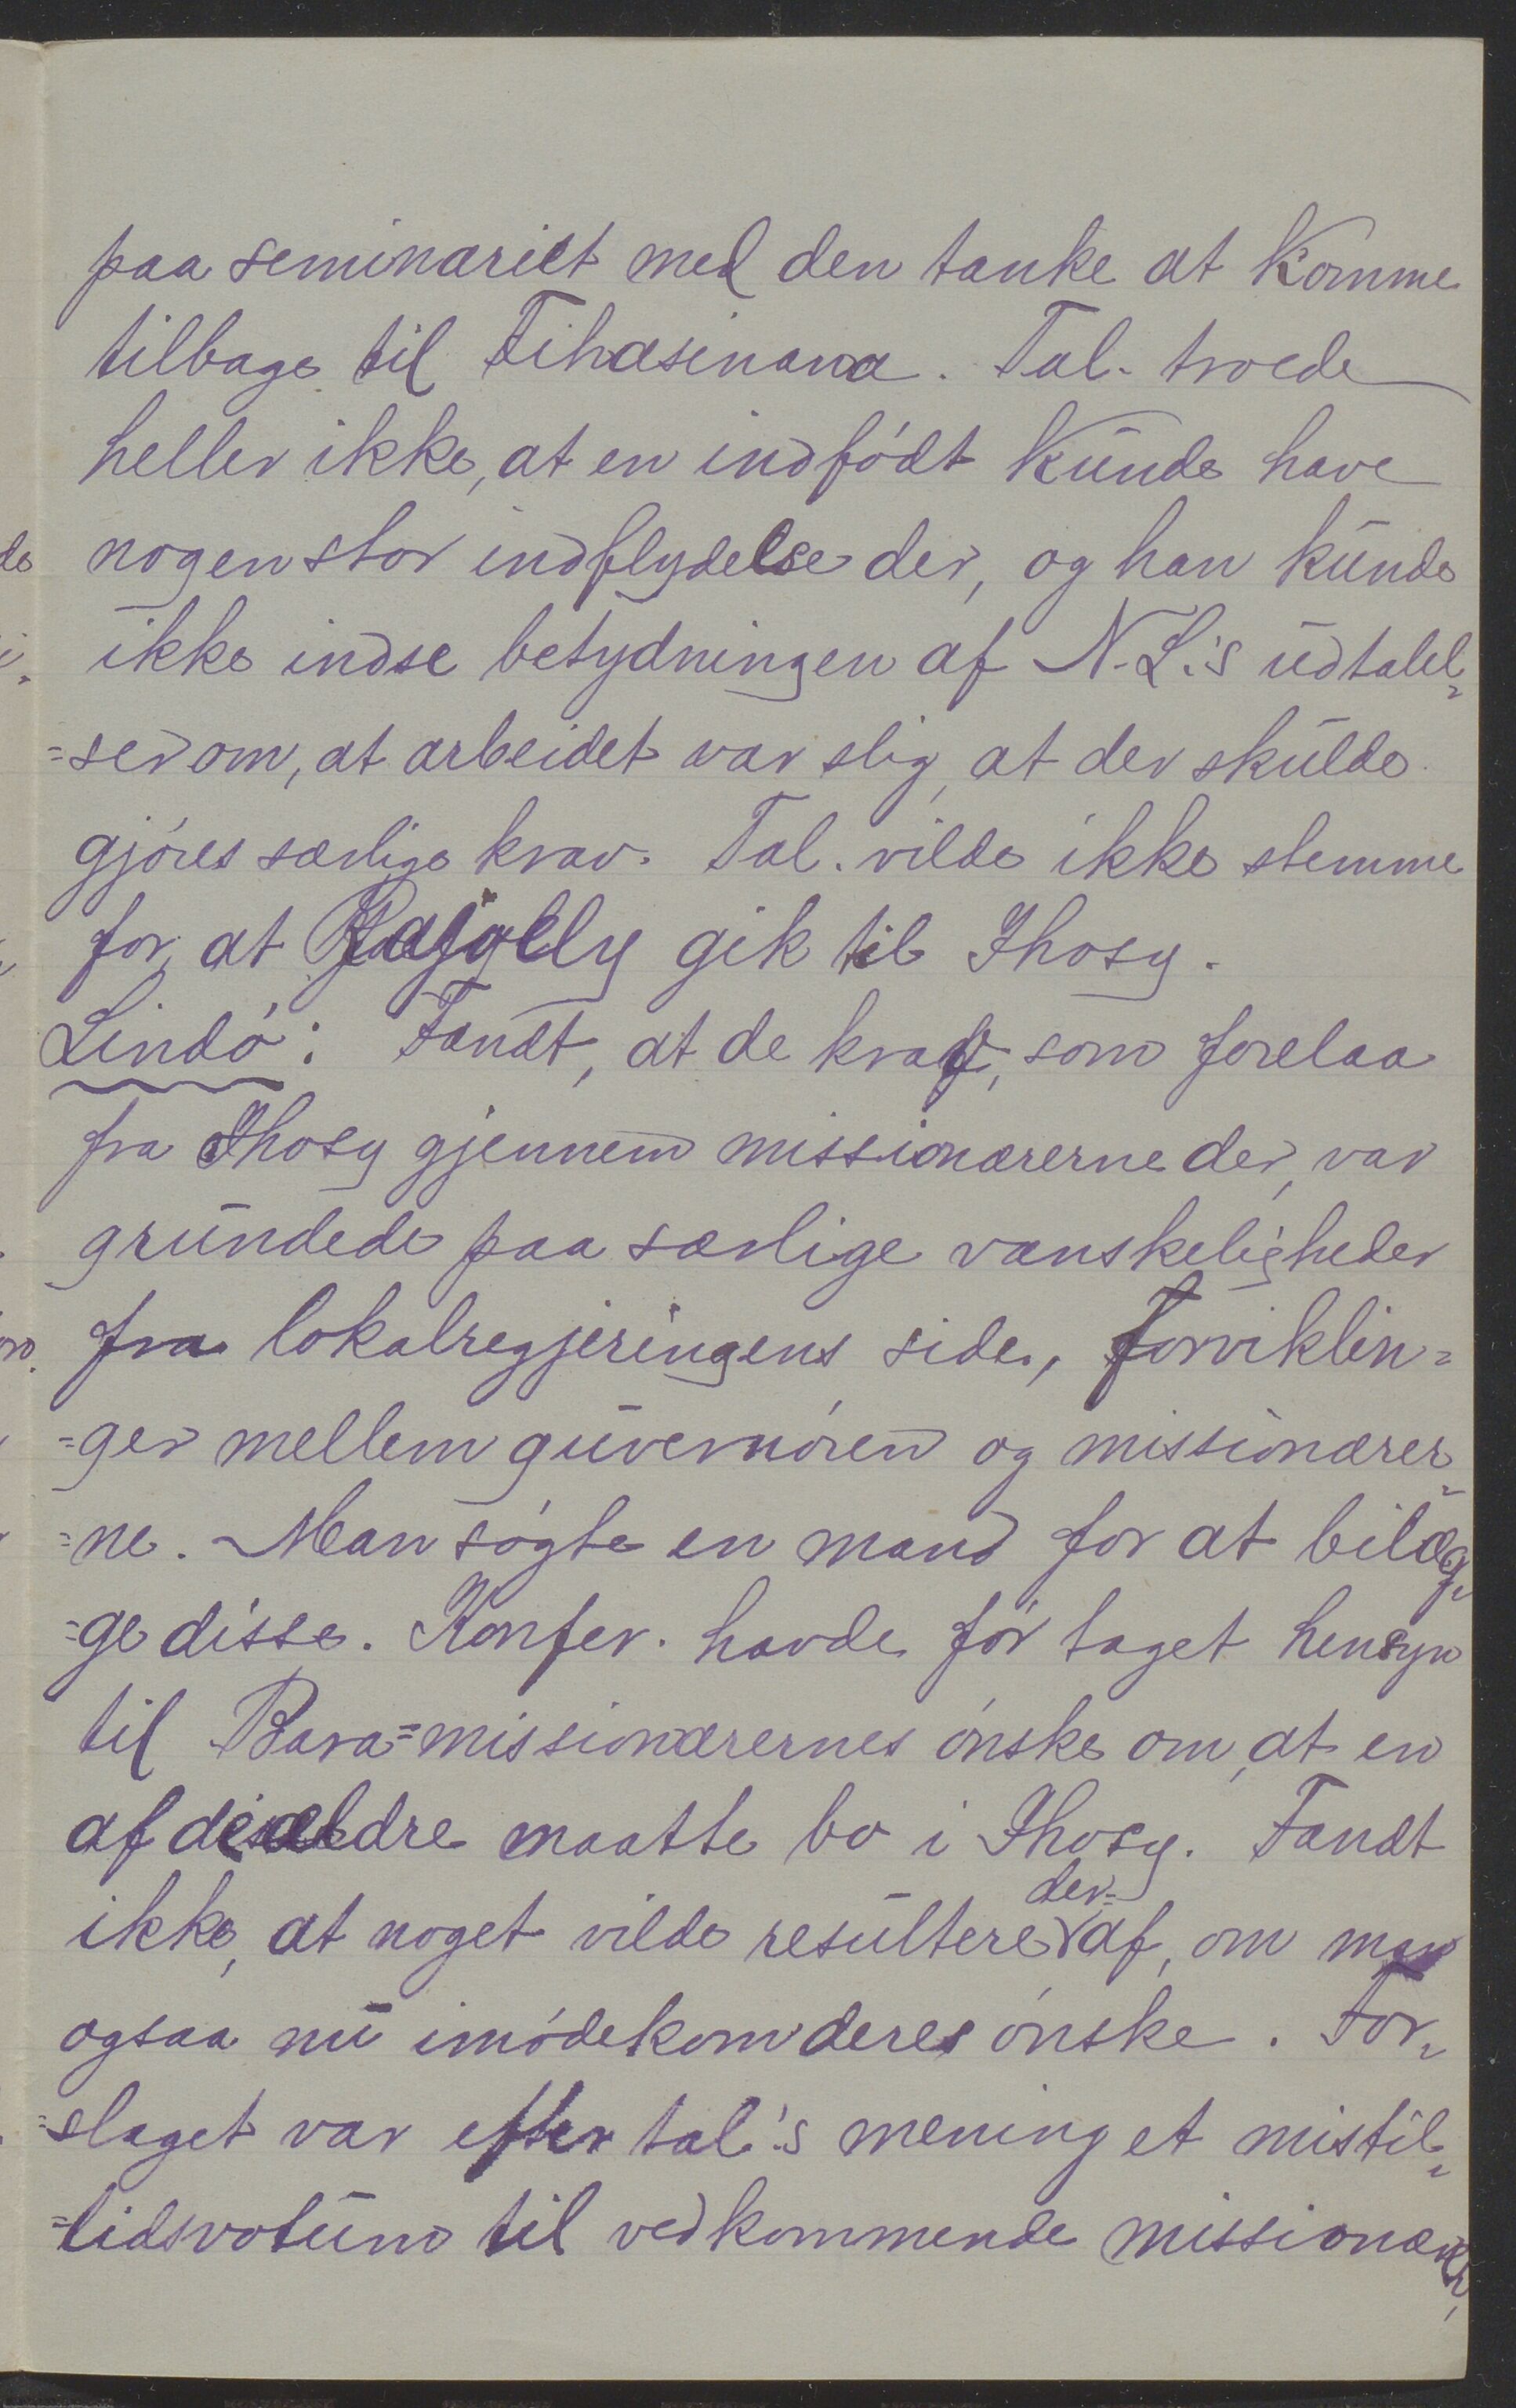 paa seminariet med den tanke at komme
tilbage til Fihasinana. Tal. troede
heller ikke, at en indfødt kunde have
nogen stor indflydelse der, og han kunde
ikke indse betydningen af N. L.'s udtalel-
-ser om, at arbeidet var slig, at der skulde
gjøres særlige krav. Tal. vilde ikke stemme
for, at Rajoely gik til Ihosy.
Lindø: Fandt, at de krav, som forelaa
fra Ihosy gjennem missionærerne der, var
grundede paa særlige vanskeligheder
fra lokalregjeringens side, forviklin-
-ger mellem guvernøren og missionærer-
-ne. Man søgte en mand for at bilæg-
-ge disse. Konfer. havde før taget hensyn
til Bara-missionærernes ønske om, at en
af de ældre maatte bo i Ihosy. Fandt
ikke, at noget vilde resultere deraf, om man
ogsaa nu imødekom deres ønske. For-
-slaget var efter tal.'s mening et mistil-
-lidsvotum til vedkommende missionær,